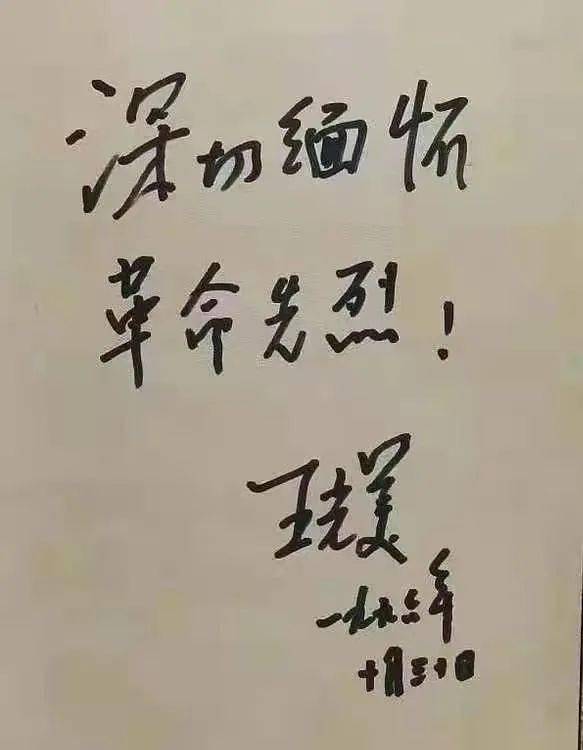 深切缅怀
革命先烈！
王光美
一九九六年
十月三十日